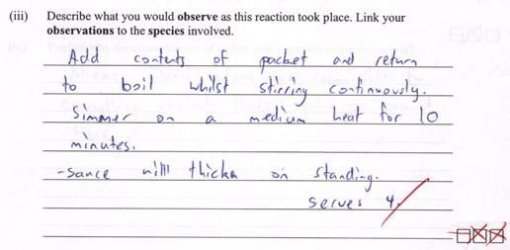 (iii) Describe what you would observe as this reaction took place. Link your
observations to the species involved.
Add contents of packet and return
to boil whilst stirring continuously.
Simmer on a medium heat for 10
minutes.
-Sauce will thicken on standing.
serves 4